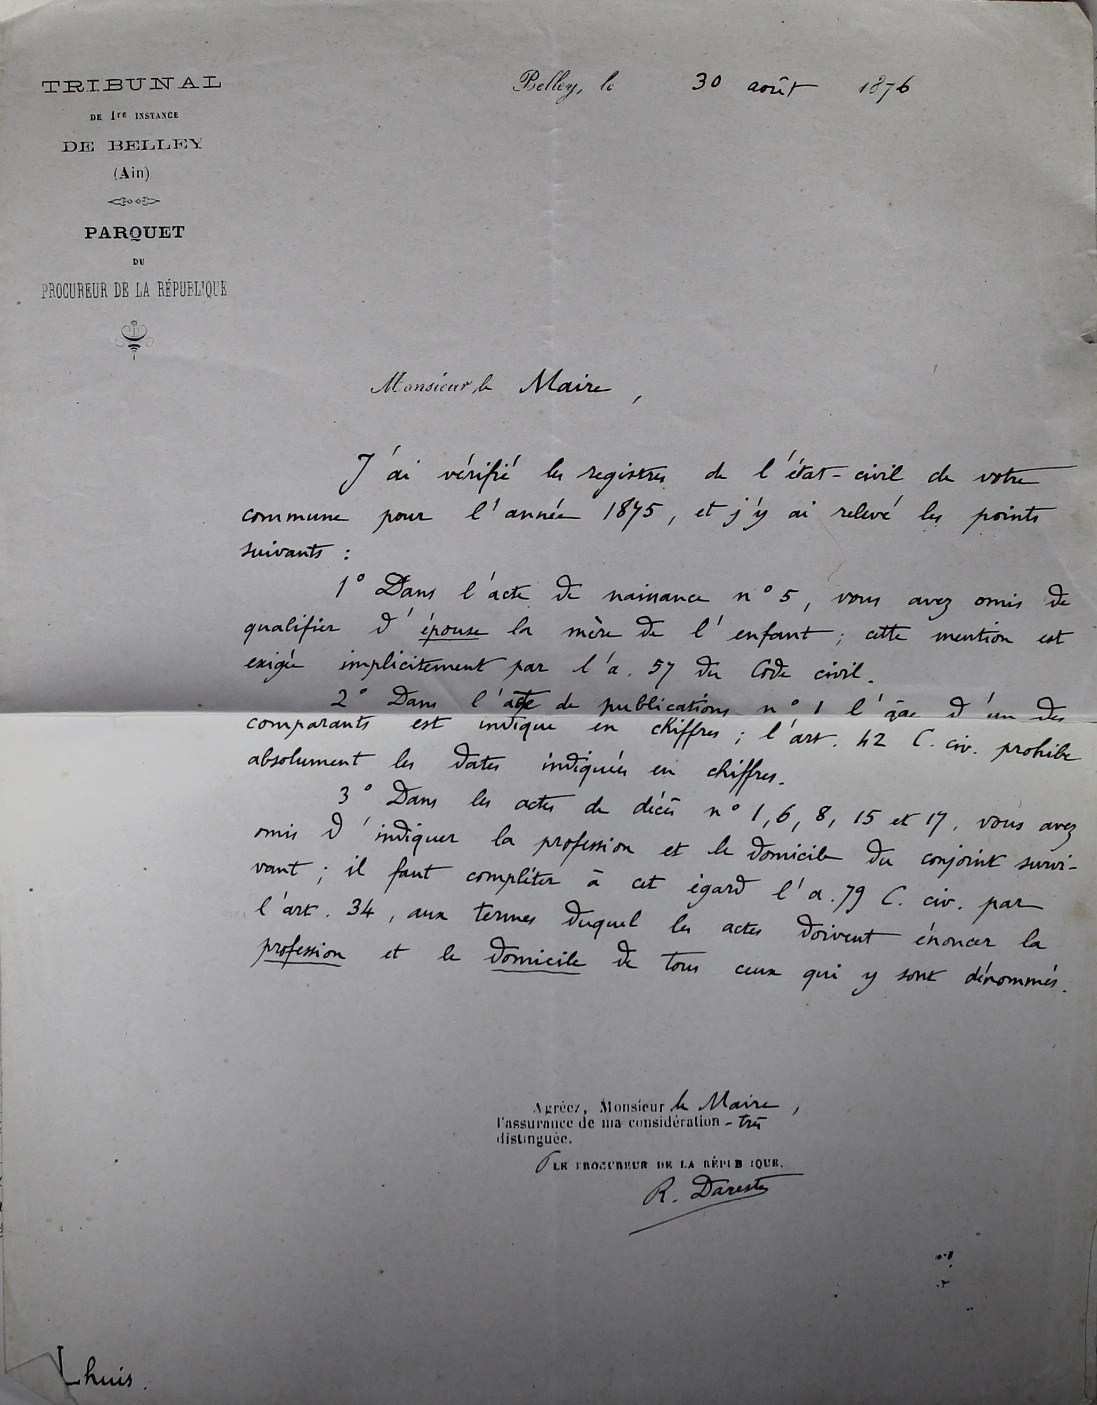 TRIBUNAL
DE 1re INSTANCE
DE BELLEY
(Ain)
PARQUET
DU
PROCUREUR DE LA RÉPUBLIQUE
Belley, le 30 août 1876
Monsieur le Maire,
J'ai vérifié les registres de l'état-civil de votre
commune pour l'année 1875, et j'y ai relevé les points
suivants :
1° Dans l'acte de naissance n° 5, vous avez omis de
qualifier d'épouse la mère de l'enfant ; cette mention est
exigée implicitement par l'a. 57 du Code civil.
2° Dans l'acte de publications n° 1 l'âge d'un des
comparants est indiqué en chiffres ; l'art. 42 C. civ. prohibe
absolument les dates indiquées en chiffres.
3° Dans les actes de décès n° 1, 6, 8, 15 et 17, vous avez
omis d'indiquer la profession et le domicile du conjoint survi-
vant ; il faut compléter à cet égard l'a. 79 C. civ. par
l'art. 34, aux termes duquel les actes doivent énoncer la
profession et le domicile de tous ceux qui y sont dénommés.
Agréez, Monsieur le Maire,
l'assurance de ma considération très
distinguée.
LE PROCUREUR DE LA RÉPUBLIQUE.
R. Dareste
Lhuis.